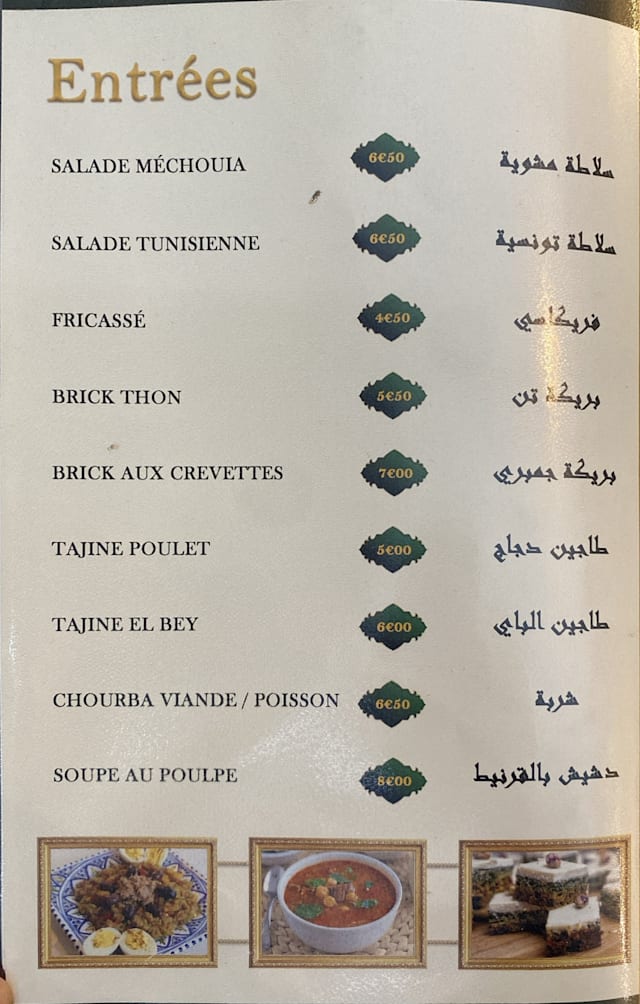 Entrées
SALADE MÉCHOUIA 6€50 سلاطة مشوية
SALADE TUNISIENNE 6€50 سلاطة تونسية
FRICASSÉ 4€50 فريكاسي
BRICK THON 5€50 بريكة تن
BRICK AUX CREVETTES 7€00 بريكة جمبري
TAJINE POULET 5€00 طاجين دجاج
TAJINE EL BEY 6€00 طاجين الباي
CHOURBA VIANDE / POISSON 6€50 شربة
SOUPE AU POULPE 8€00 دشيش بالقرنيط